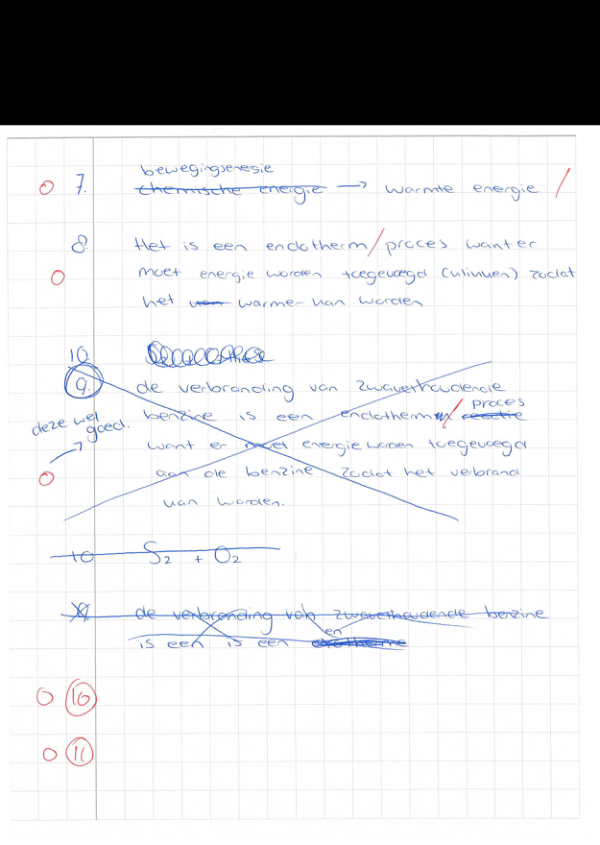 bewegingsenesie
0 7. chemische energie → warmte energie /
8. Het is een endotherm/proces want er
0 moet energie worden toegevoegd (vlinuen) zodat
het van warmer van worden
10.
9. de verbranding van zwavelhoudende
deze wel goed. benzine is een endotherm / reactie proces
want er moet energie woren toegevoegd
0 aan de benzine zodat het verbrand
van worden.
10 S2 + O2
9. de verbranding van zwavelhoudende benzine
is een is een en exotherme
0 10
0 11